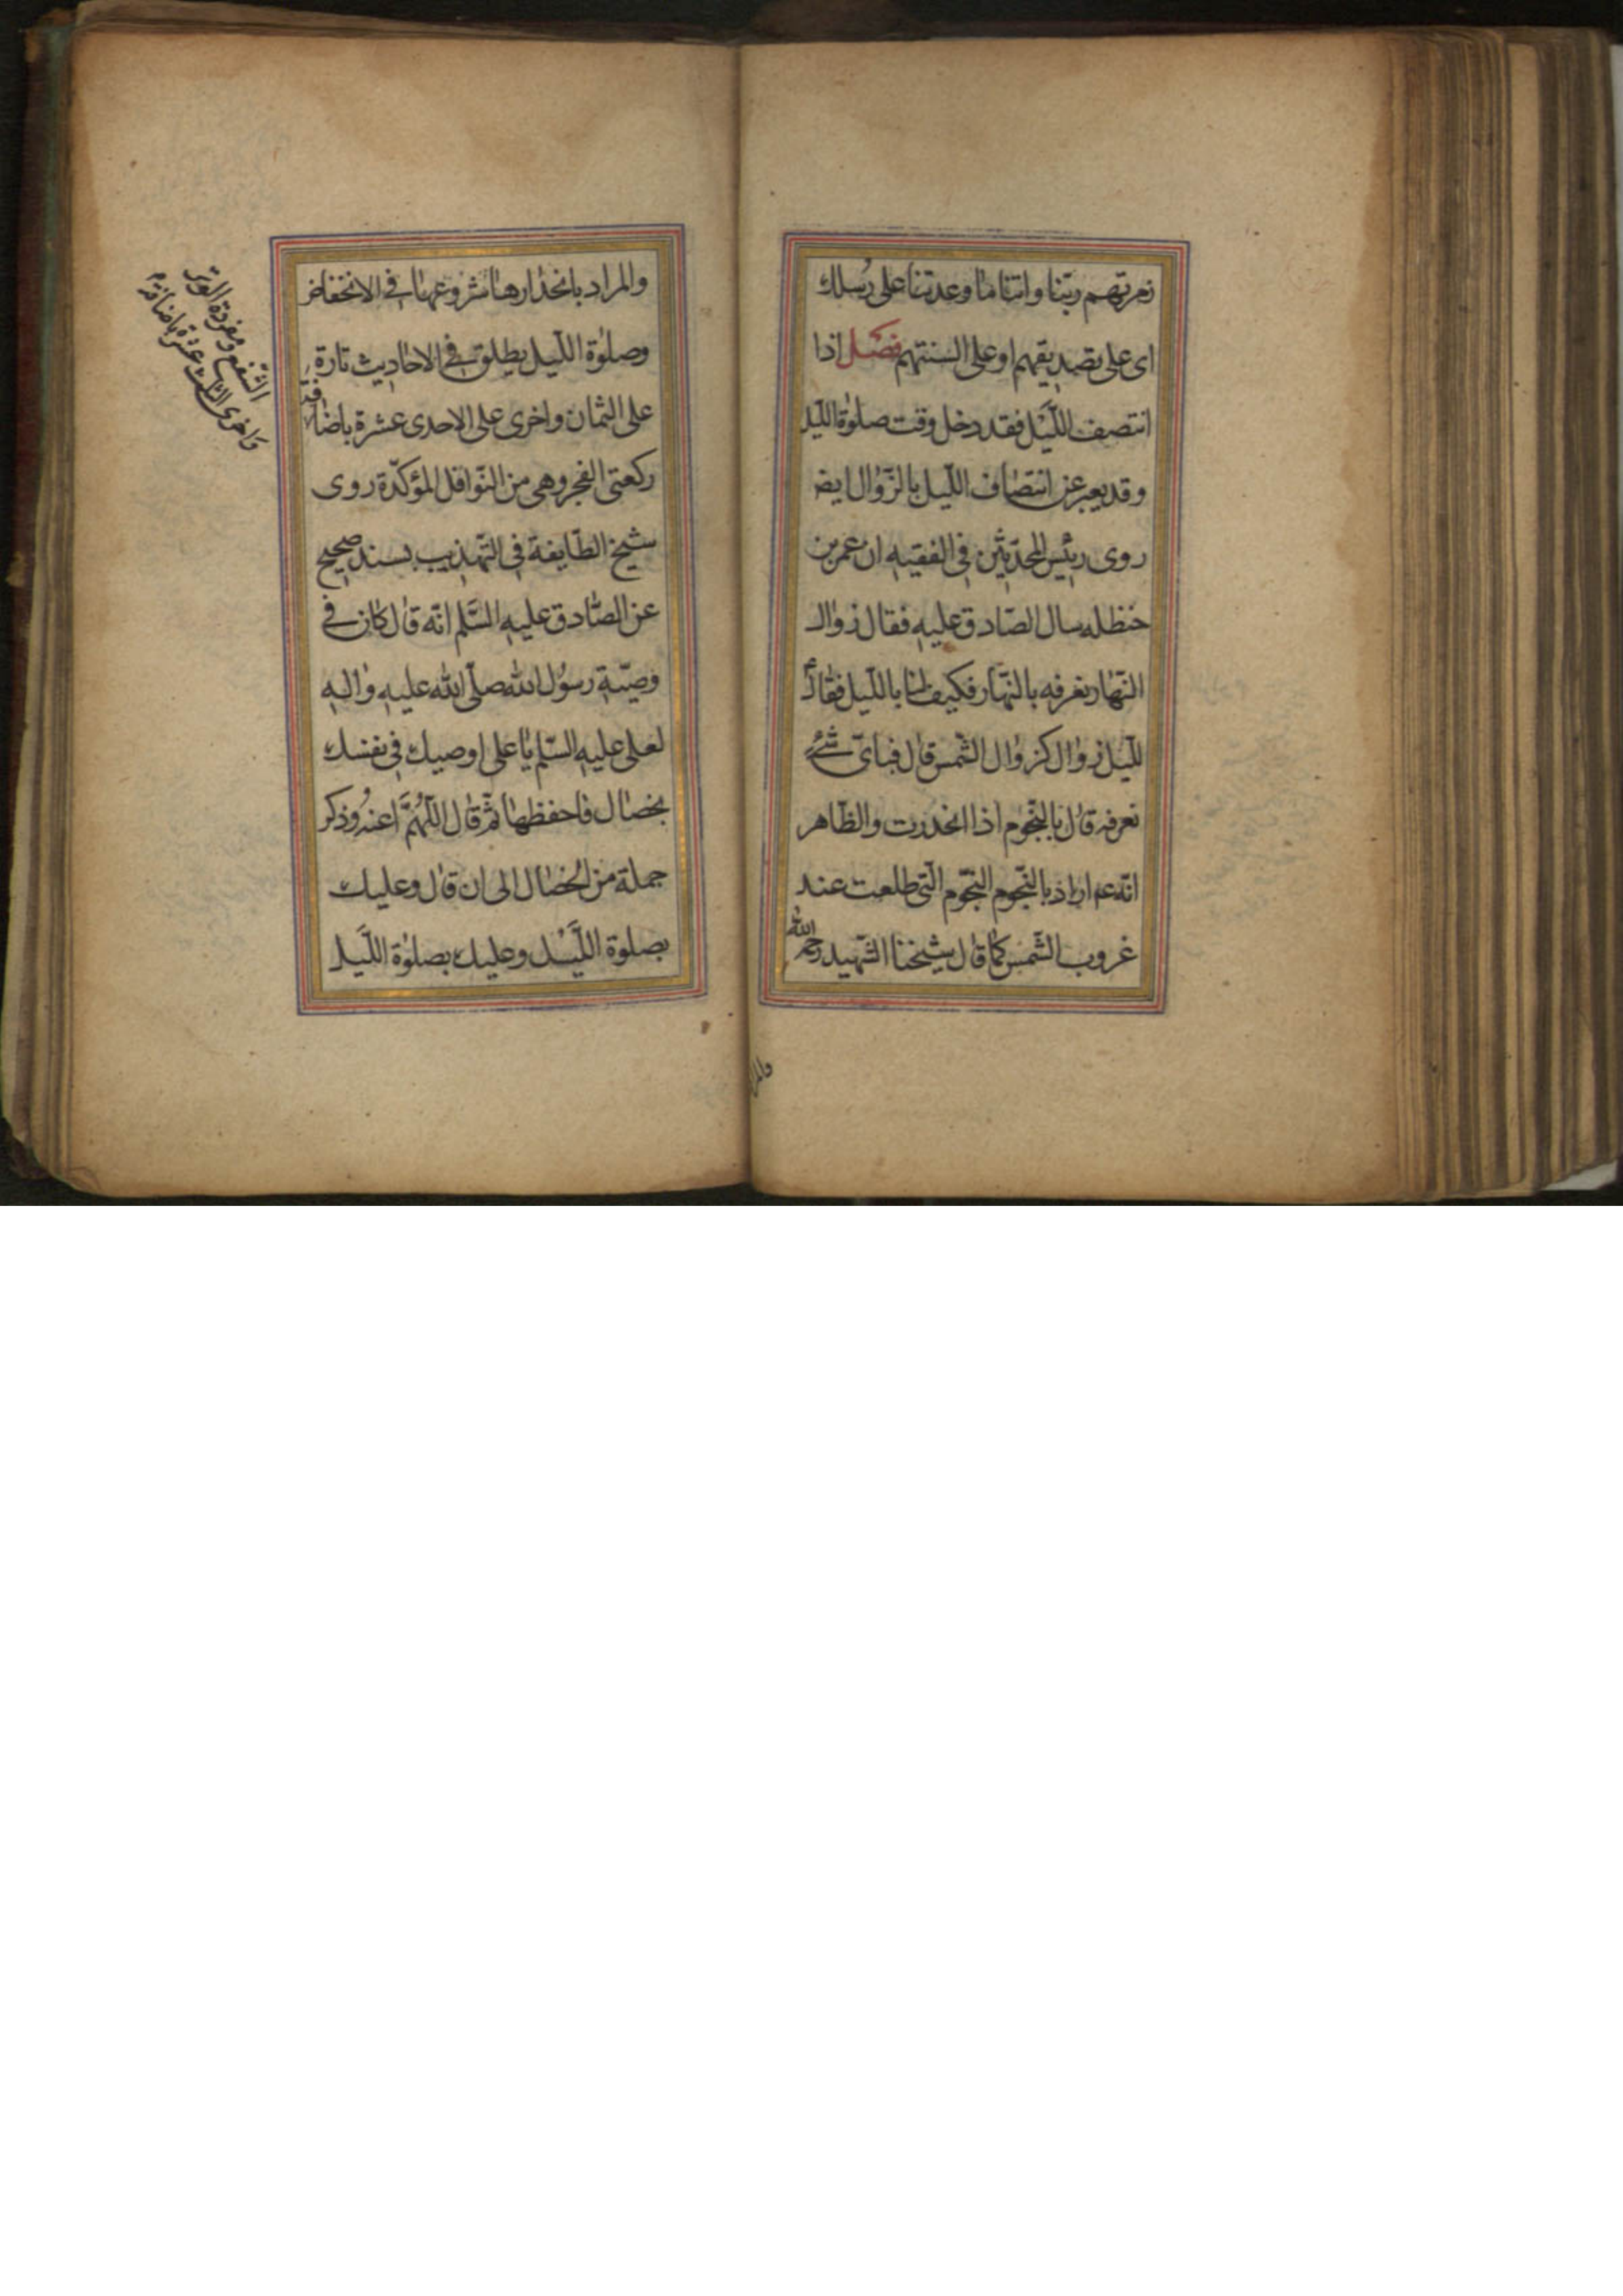 زمرتهم ربّنا واتنا ما وعدتنا على رسلك
اى على تصديقهم او على السنتهم فصل اذا
انتصف اللّيل فقد دخل وقت صلوة اللّيل
وقد يعبر عن انتصاف اللّيل بالزّوال ايضا
روى رئيس المحدّثين فى الفقيه ان عمر بن
حنظله سال الصّادق عليه فقال زوال
النّهار نعرفه بالنّهار فكيف لنا باللّيل فقال
للّيل زوال كزوال الشّمس قال فباىّ شئ
نعرفه قال بالنّجوم اذا انحدرت والظّاهر
انّه عم اراد بالنّجوم النّجوم الّتى طلعت عند
غروب الشّمس كما قال شيخنا الشّهيد رحمه الله
والمر
والمراد بانحدارها شروعها فى الانخفاض
وصلوة اللّيل يطلق فى الاحاديث تارة
على الثمان واخرى على الاحدى عشرة باضافة
الشّفع ومفردة الوتر
واخرى الثلث عشرة باضافة
ركعتى الفجر وهى من النّوافل المؤكدّة روى
شيخ الطّايفة فى التّهذيب بسند صحيح
عن الصّادق عليه السّلم انّه قال كان فى
وصيّة رسول الله صلّى الله عليه واله
لعلى عليه السّلم يا على اوصيك فى نفسك
بخصال فاحفظها ثمّ قال اللّهمّ اعنه وذكر
جملة من الخصال الى ان قال وعليك
بصلوة اللّيل وعليك بصلوة اللّيل